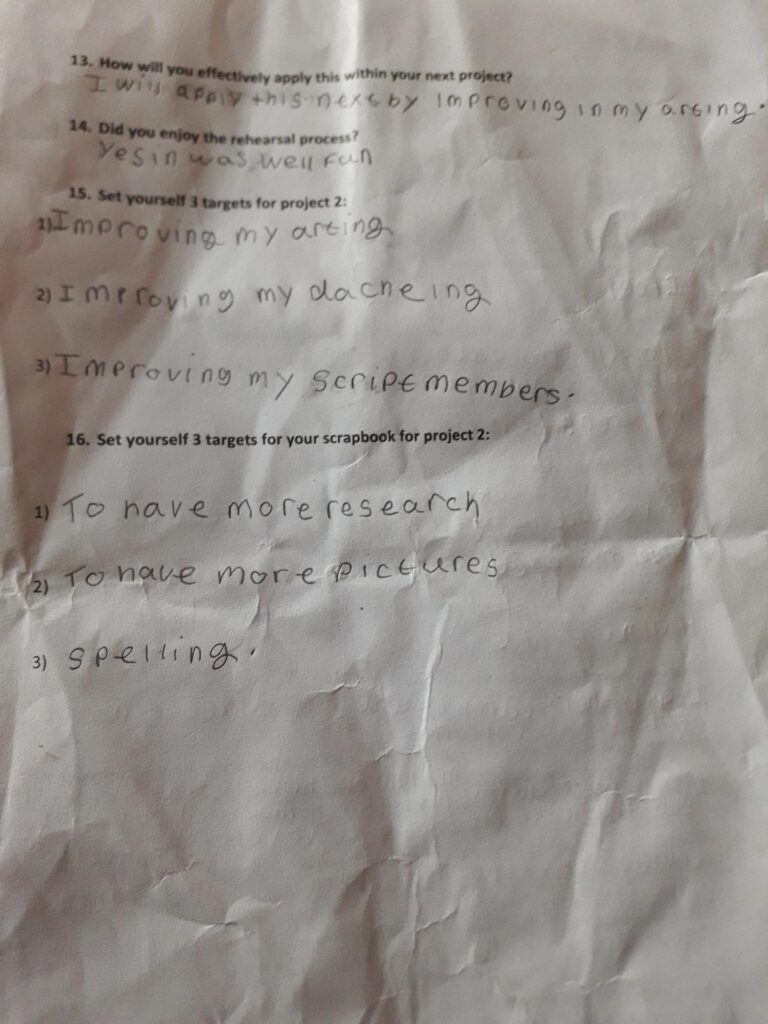 13. How will you effectively apply this within your next project?
I will apply this next by improving in my arting.
14. Did you enjoy the rehearsal process?
Yes in was well fun
15. Set yourself 3 targets for project 2:
1) Improving my arting
2) Improving my dacheing
3) Improving my script members.
16. Set yourself 3 targets for your scrapbook for project 2:
1) To have more research
2) To have more pictures
3) spelling.